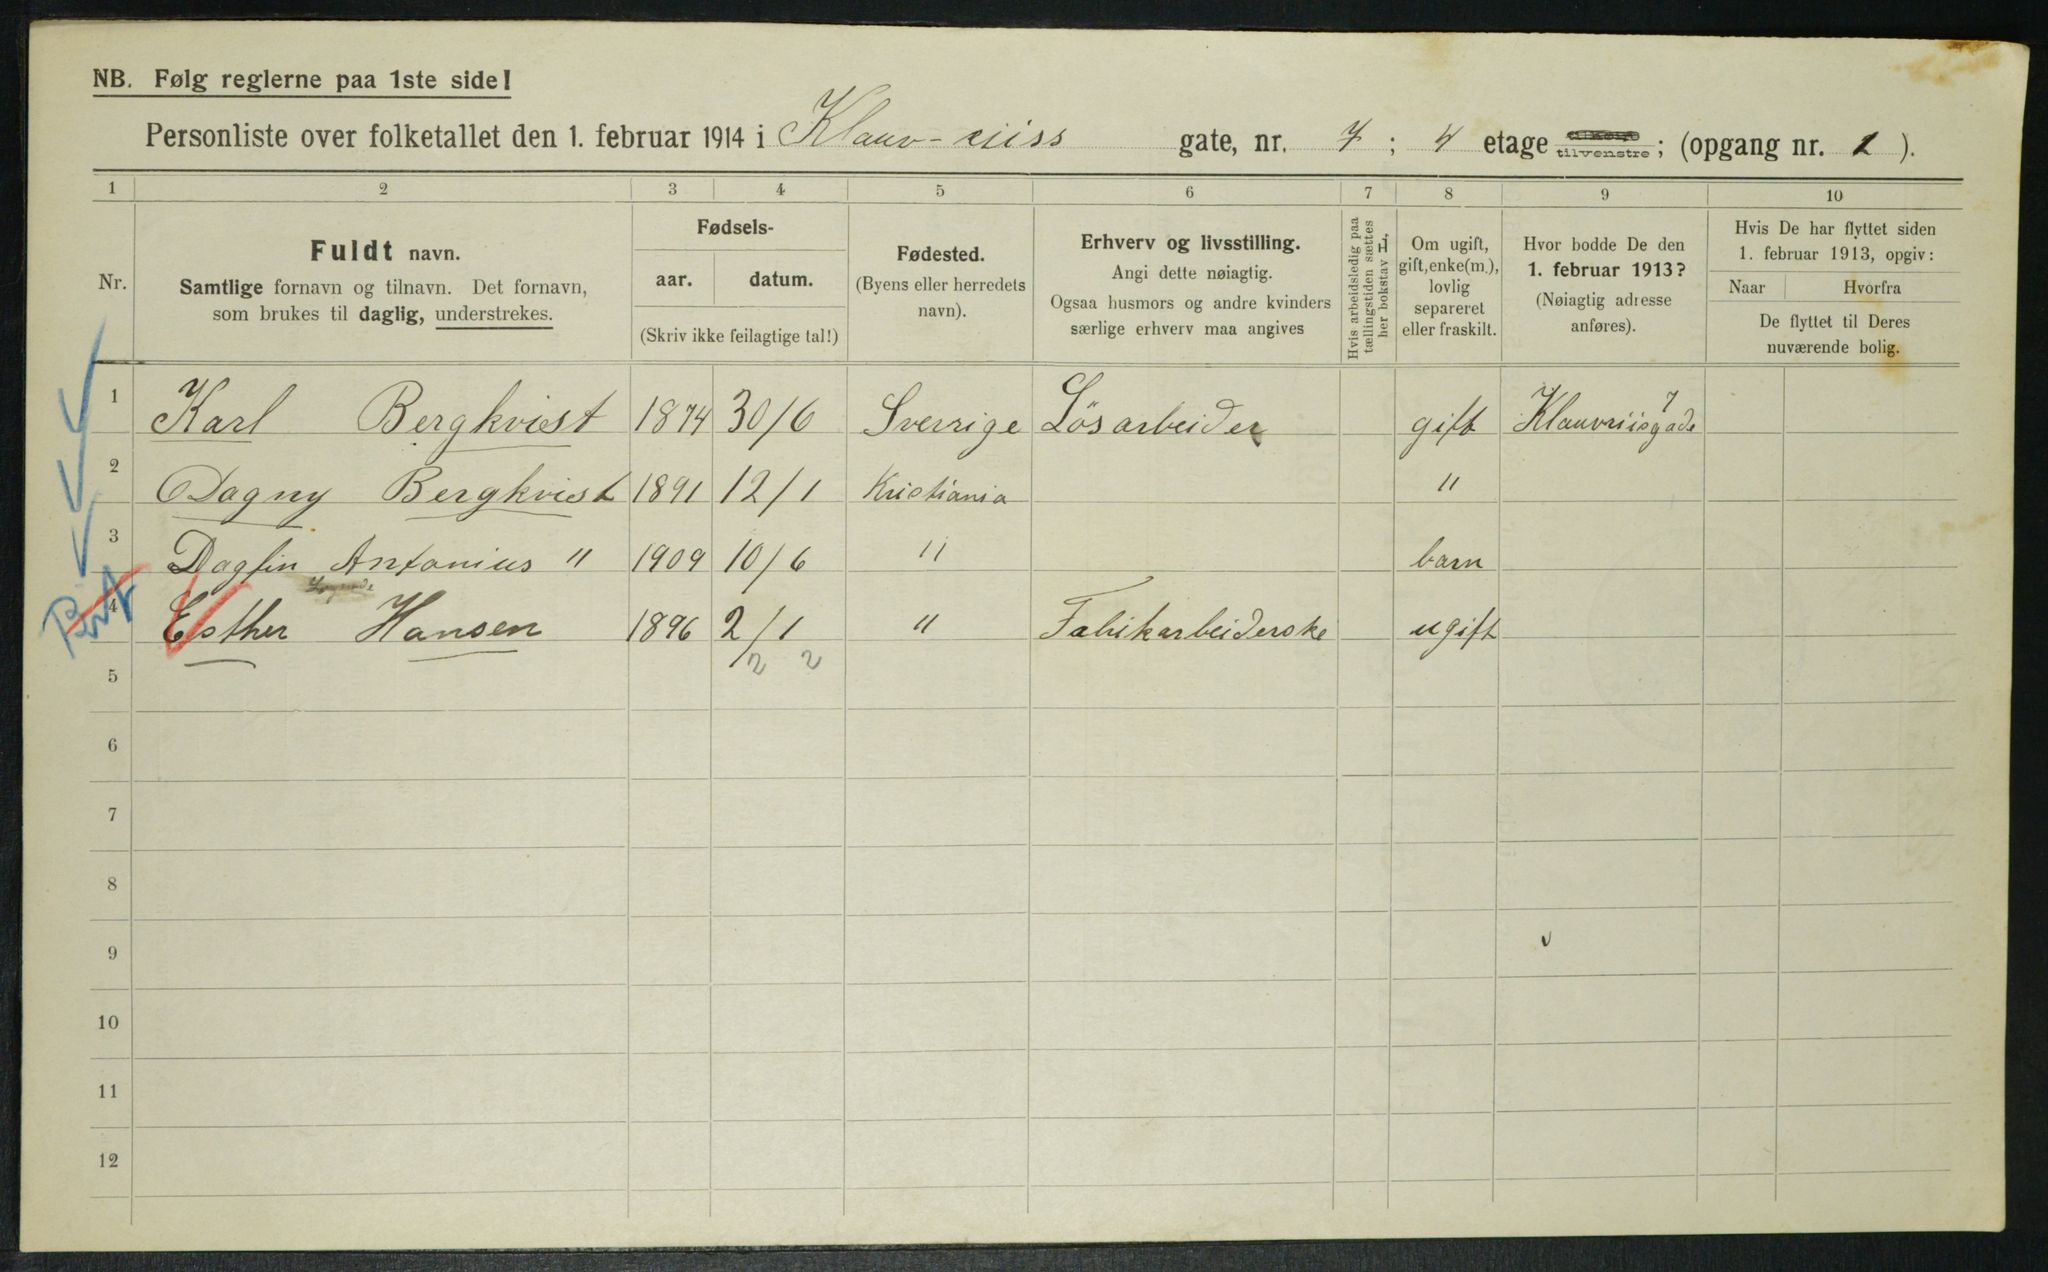 NB. Følg reglerne paa 1ste side!
Personliste over folketallet den 1. februar 1914 i Klauv-riiss gate, nr. 7 ; 4 etage tilvenstre ; (opgang nr. 1 ).
1 2 3 4 5 6 7 8 9 10
Nr.
Fuldt navn.
Samtlige fornavn og tilnavn. Det fornavn,
som brukes til daglig, understrekes.
Fødsels-
aar. datum.
(Skriv ikke feilagtige tal!)
Fødested.
(Byens eller herredets
navn).
Erhverv og livsstilling.
Angi dette nøiagtig.
Ogsaa husmors og andre kvinders
særlige erhverv maa angives
Hvis arbeidsledig paa
tællingstiden sættes
her bokstav L,
Om ugift,
gift, enke(m.),
lovlig
separeret
eller fraskilt.
Hvor bodde De den
1. februar 1913?
(Nøiagtig adresse
anføres).
Hvis De har flyttet siden
1. februar 1913, opgiv:
Naar Hvorfra
De flyttet til Deres
nuværende bolig.
1 Karl Bergkvist 1874 30/6 Sverrige Lösarbeider gift Klauvriisgade 7
2 Dagny Bergkvist 1891 12/1 Kristiania "
3 Dagfin Antonius " 1909 10/6 " barn
4 Esther Hansen 1896 2/1 " Fabrikarbeiderske ugift
2 2
5
6
7
8
9
10
11
12